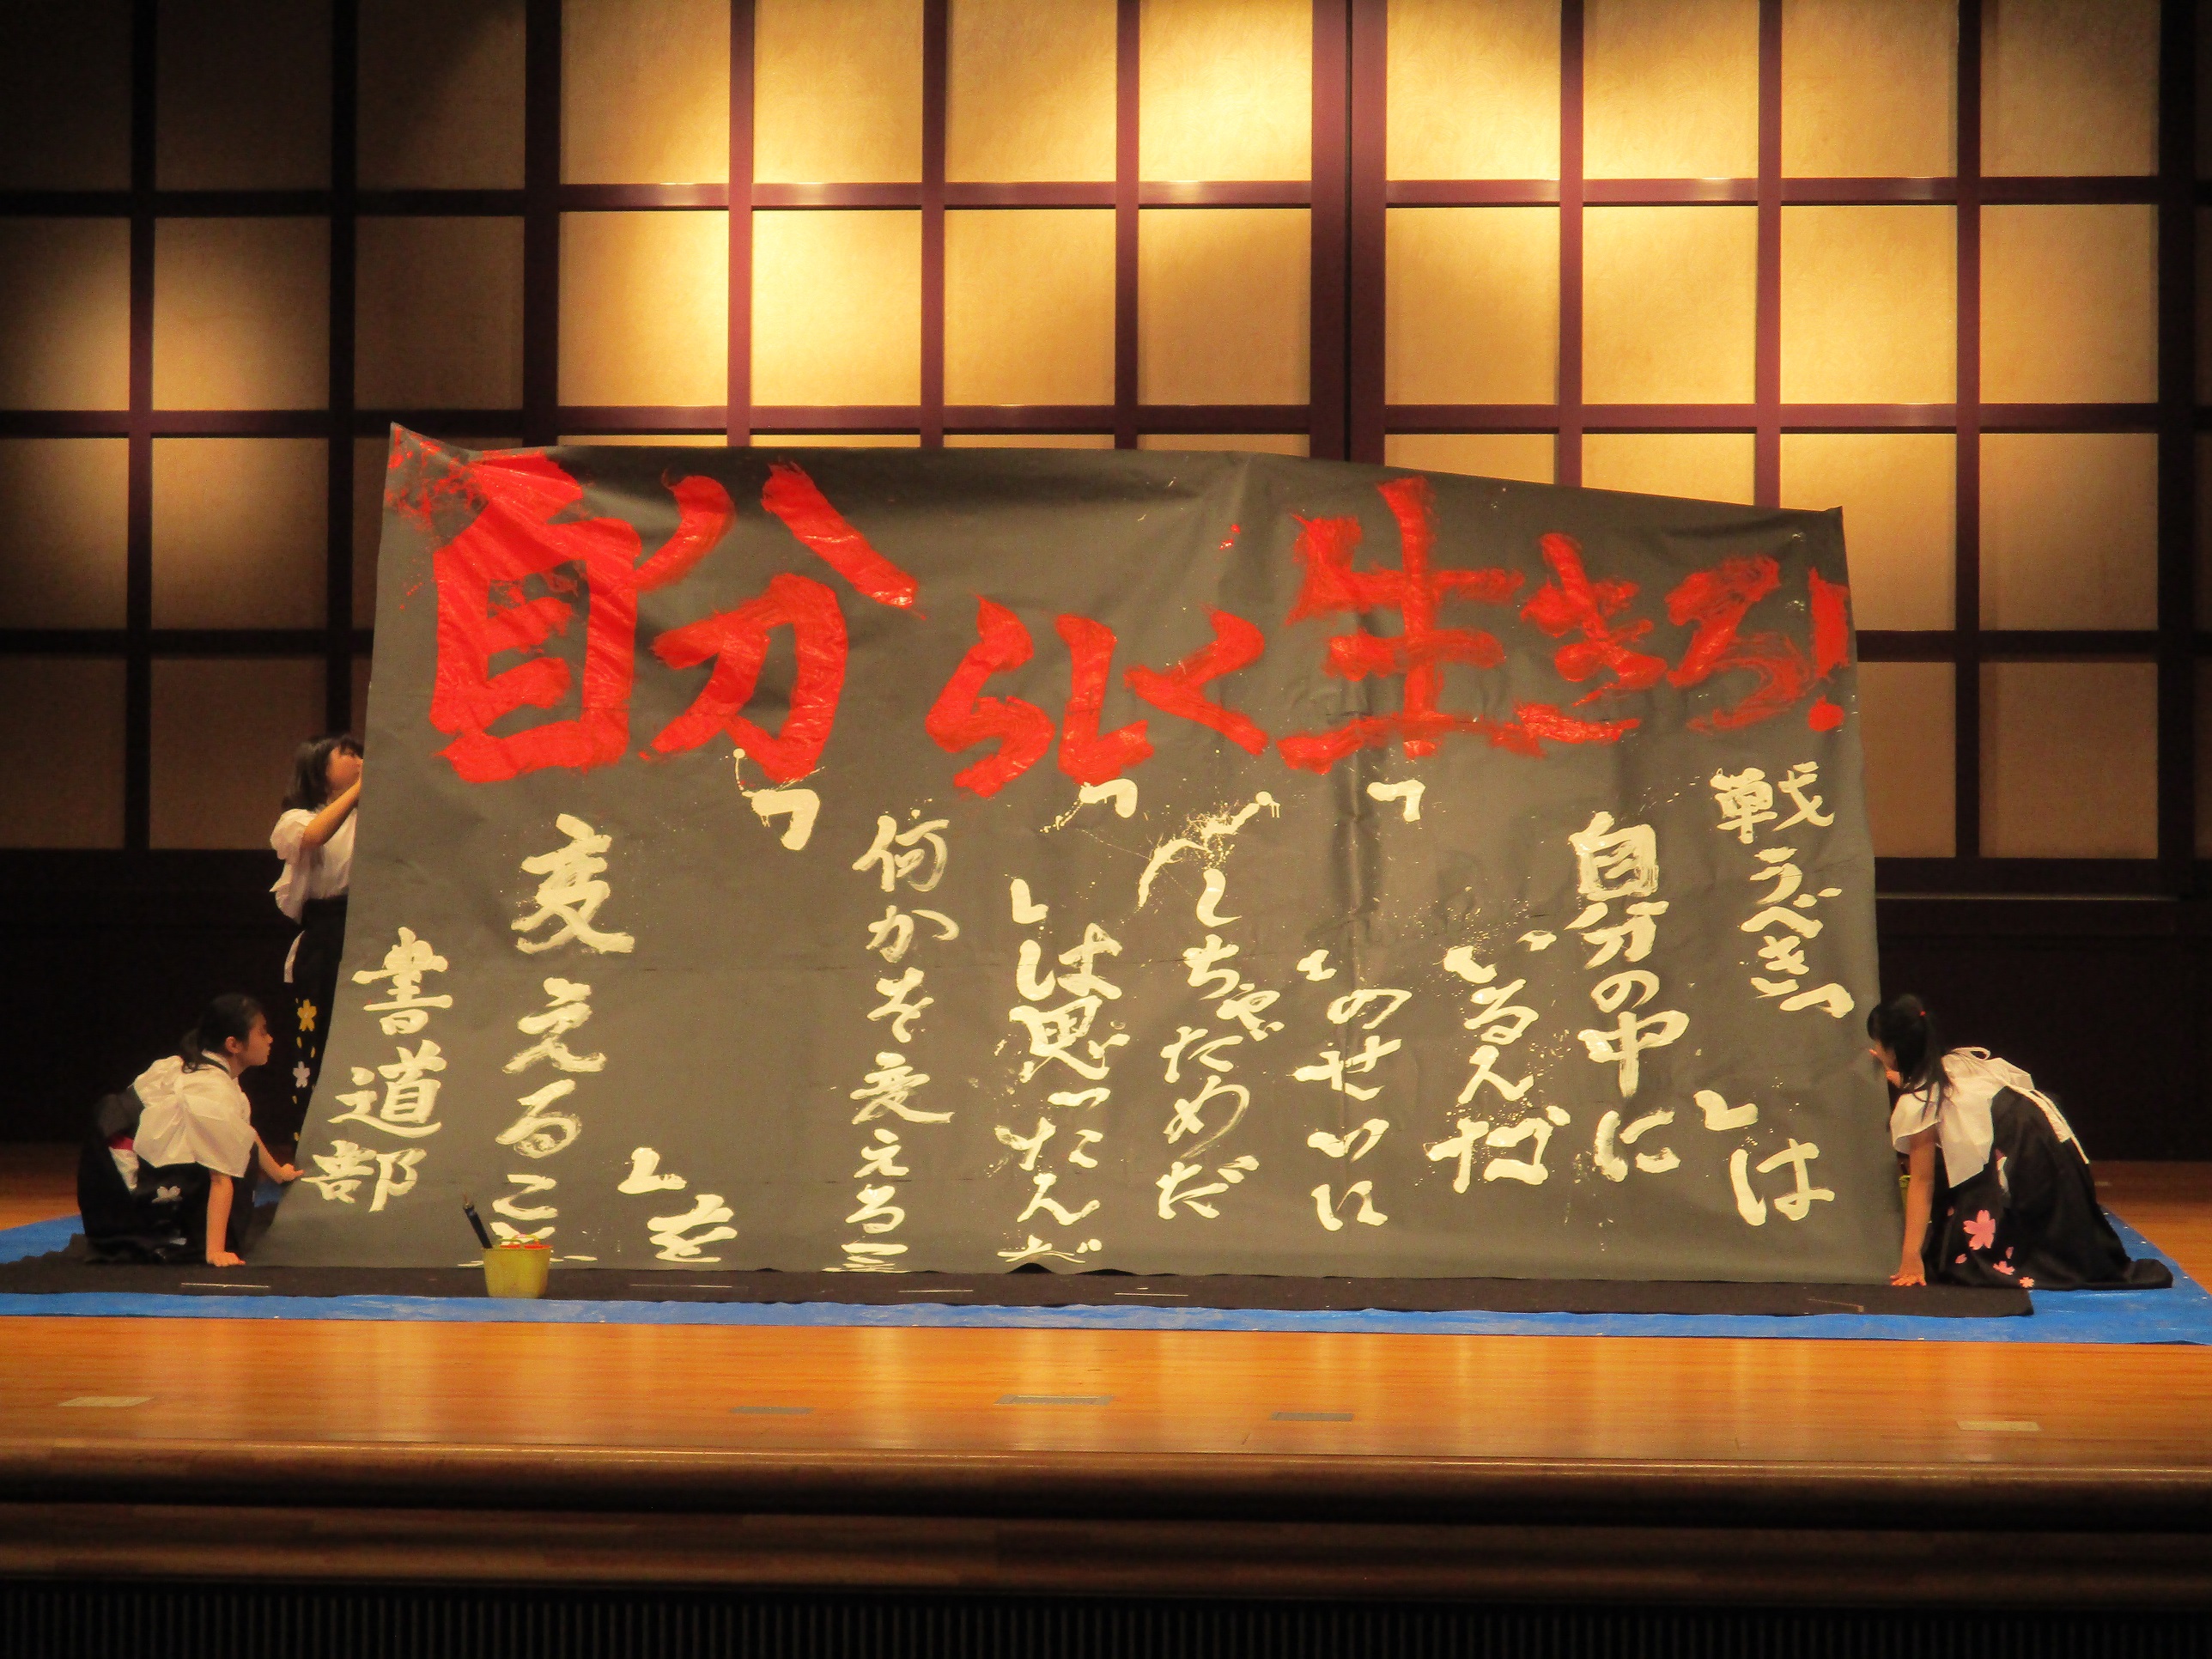 自分らしく生きろ!
戦うべき「　」は
自分の中に
いるんだ
「　」のせいに
しちゃだめだ
「　」は思ったんだ
何かを変える
「　」を
変えるこ
書道部